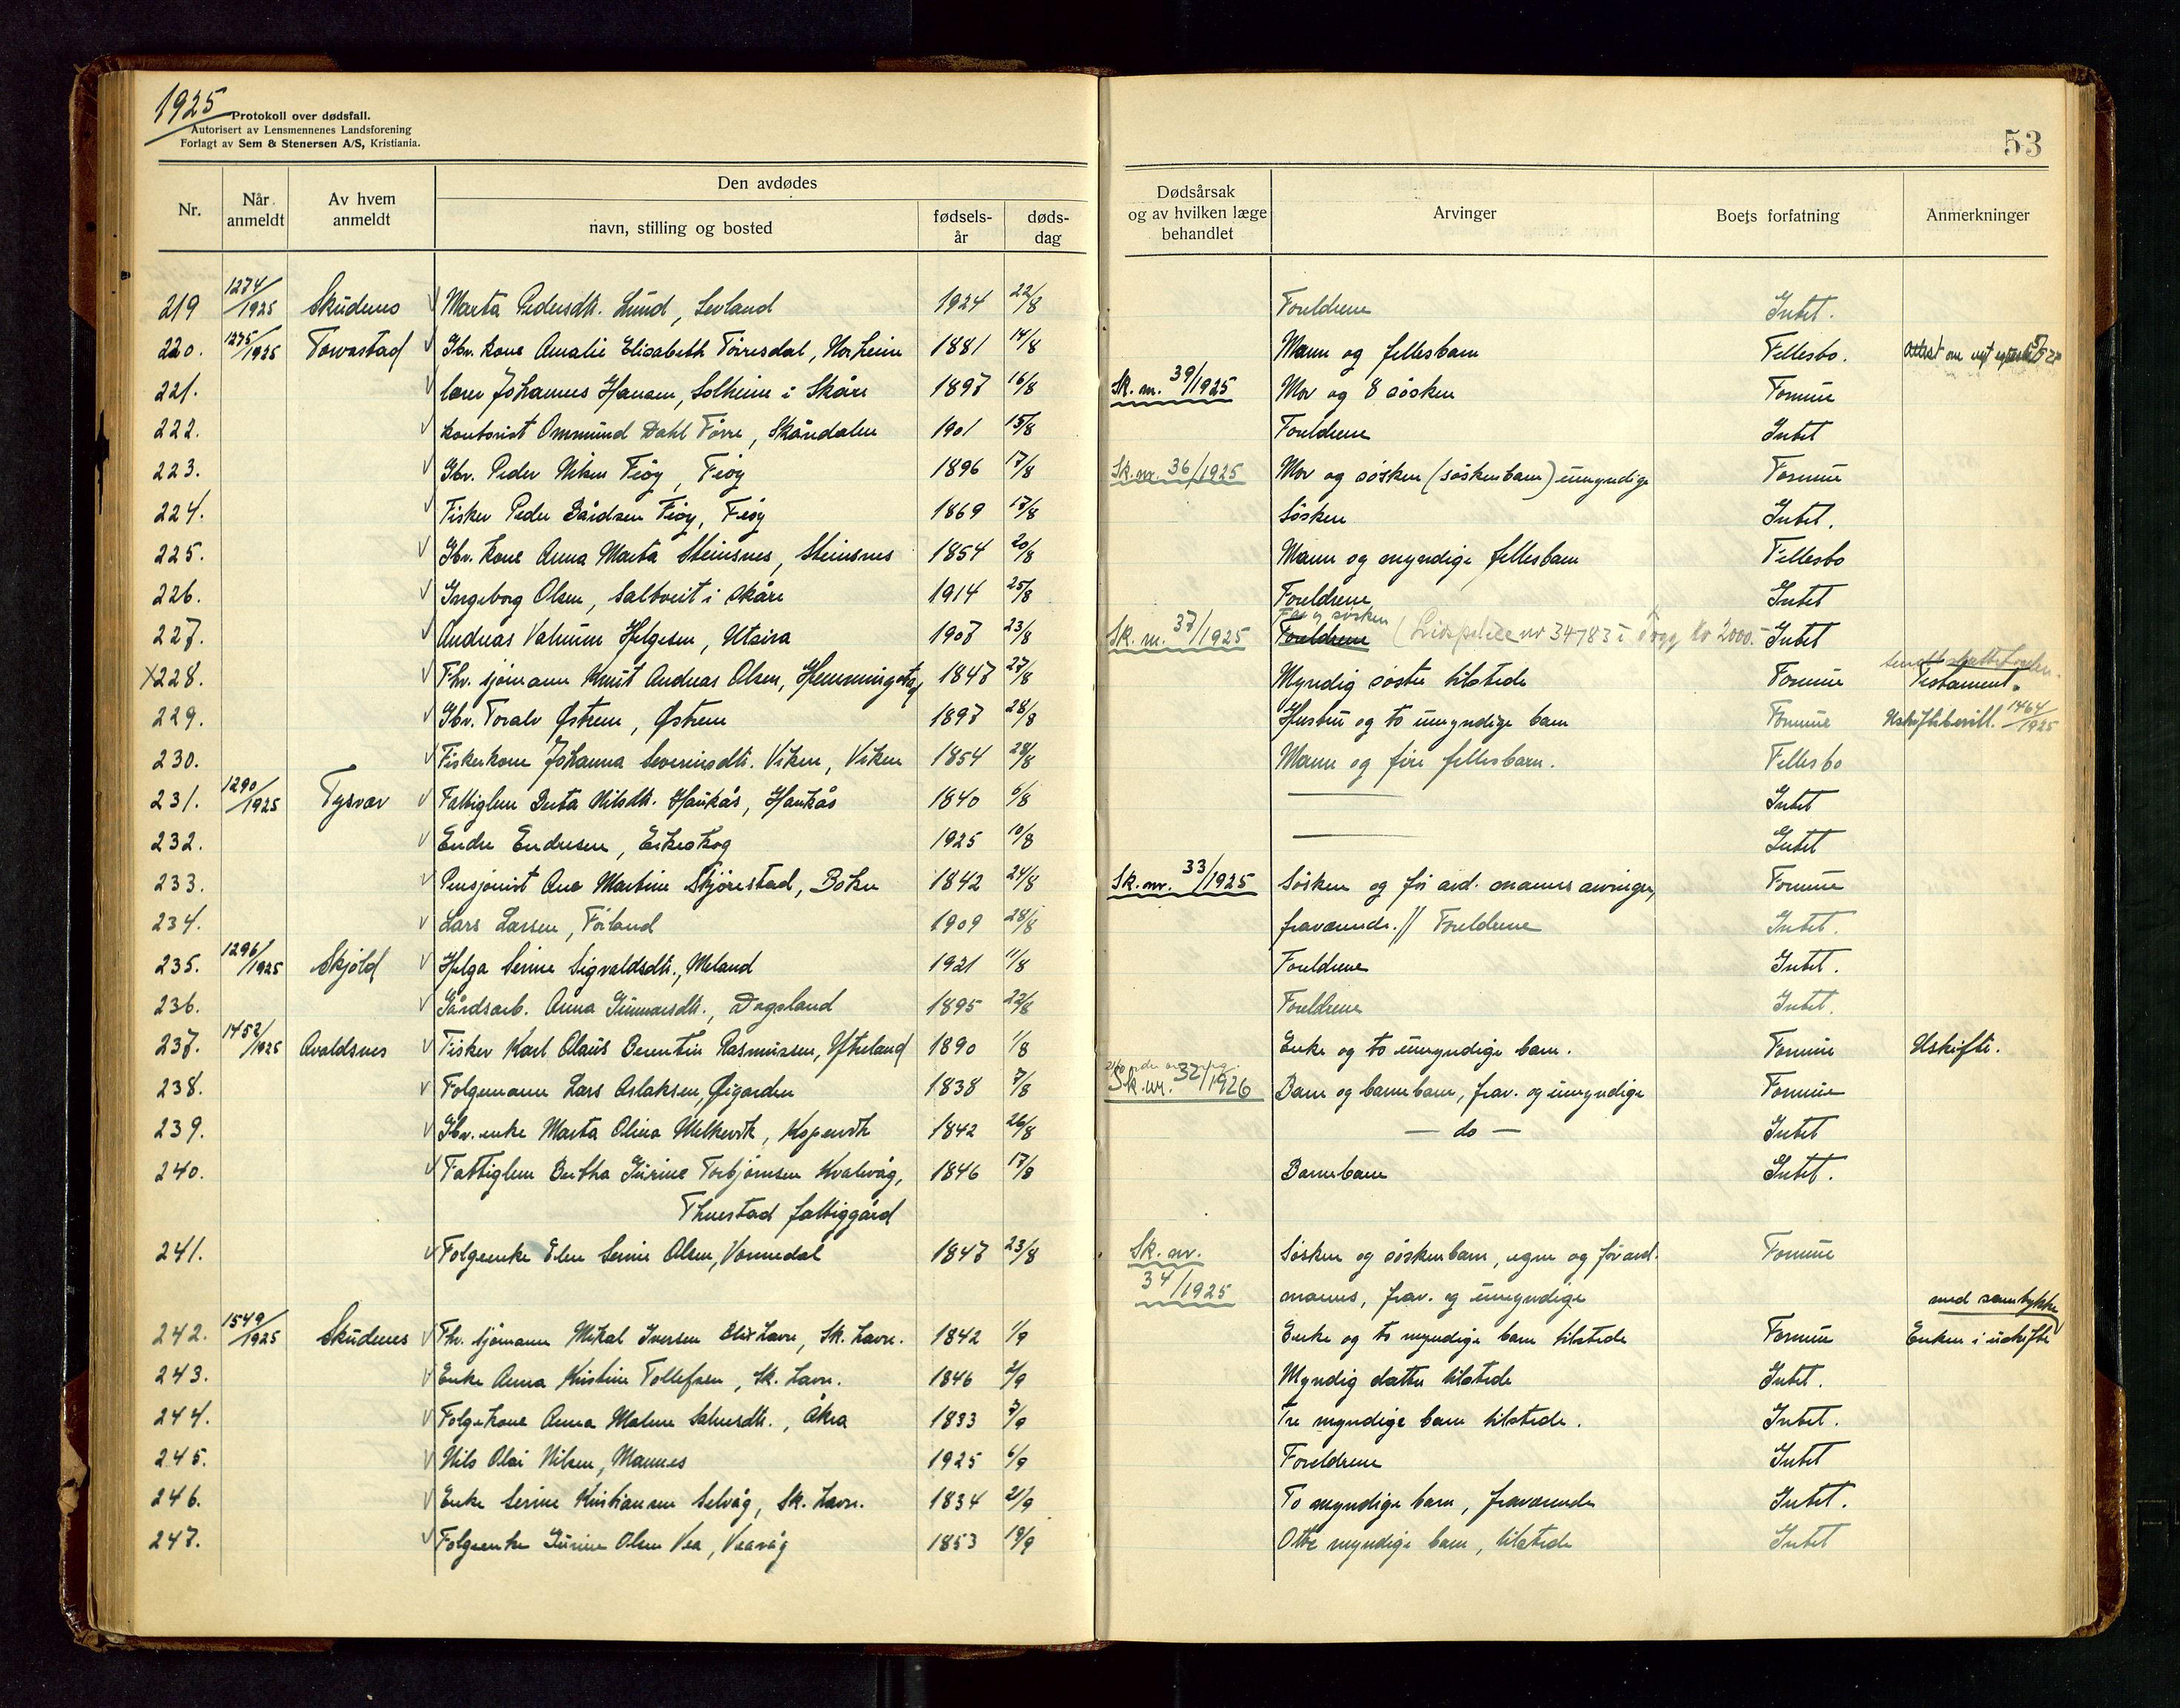 1925
Protokoll over dødsfall.
Autorisert av Lensmennenes Landsforening
Forlagt av Sem & Stenersen A/S, Kristiania.
53
Nr. Når anmeldt Av hvem anmeldt Den avdødes navn, stilling og bosted fødsels-år døds-dag Dødsårsak og av hvilken læge behandlet Arvinger Boets forfatning Anmerkninger
219 1274/1925 Skudenes Marta Pedersdtr. Lund, Sevland 1924 22/8 Foreldrene Intet.
220. 1275/1925 Torvastad Gbr. kone Amalie Elisabeth Tørresdal, Norheim 1881 14/8 Mann og fellesbarn Fellesbo. Attest om
221. lærer Johannes Hansen, Solheim i Skåre 1897 16/8 Sk. nr. 39/1925 Mor og 8 søsken Formue
222. kontorist Ommund Dahl Førre, Skåredalen 1901 15/8 Foreldrene Intet
223. Gbr. Peder Nilsen Feøy, Feøy 1896 17/8 Sk. nr. 36/1925 Mor og søsken (søskenbarn) umyndige Formue
224. Fisker Peder Bårdsen Feøy, Feøy 1869 17/8 Søsken Intet.
225. Gbr. kone Anna Marta Steinsnes, Steinsnes 1854 20/8 Mann og myndige fellesbarn Fellesbo
226. Ingeborg Olsen, Saltveit i Skåre 1914 25/8 Foreldrene Intet
227. Andreas Helgesen, Utsira 1907 23/8 Sk. nr. 37/1925 Foreldrene Far og søsken (Livspolice nr 34783 i Kr 2000.- Intet
X228. Fhv. sjømann Knut Andreas Olsen, Hemmingstad 1847 27/8 Myndig søster tilstede Formue Testament.
229. Gbr. Toralv Østrem, Østrem 1897 28/8 Hustru og to umyndige barn Formue Uskiftebevill. 1464/1925
230. Fiskerkone Johanna Severinsdtr. Viken, Viken 1854 28/8 Mann og fire fellesbarn. Fellesbo
231. 1290/1925 Tysvær Fattiglem Berta Nilsdtr. Haukås, Haukås 1840 6/8 — Intet
232. Endre Endresen, Eikeskog 1925 10/8 — Intet
233. Pensjonist Ane Martine Skjørestad, Bokn 1842 24/8 Sk. nr. 33/1925 Søsken og før avd. manns arvinger, Formue
234. Lars Larsen, Førland 1909 28/8 fraværende. // Foreldrene Intet.
235. 1296/1925 Skjold Helga Serine Sigvaldsdtr., Meland 1921 11/8 Foreldrene Intet.
236. Gårdsarb. Anna Gunnarsdtr., Dagsland 1895 22/8 Foreldrene Intet.
237. 1452/1925 Avaldsnes Fisker Karl Olaus Berentin Rasmussen, Ytreland 1890 1/8 Enke og to umyndige barn. Formue Uskifte.
238. Folgemann Lars Aslaksen, Øigarden 1838 7/8 Sk. nr. 32/1926 Barn og barnebarn, frav. og umyndige Formue
239. Gbr. enke Marta Olina Melkevik, Kopervik 1842 26/8 — do — Intet
240. Fattiglem Bertha Gurine Torbjørnsen Kvalevåg, 1846 17/8 Barnebarn Intet.
Thuestad fattiggård
241. Folgeenke Elen Serine Olsen, Vormedal 1847 23/8 Sk. nr. Søsken og søskenbarn, egne og før avd. Formue
34/1925 manns, frav. og umyndige
med samtykke
242. 1549/1925 Skudenes Fhv. sjømann Mikal Iversen Sk. havn. 1842 1/9 Enke og to myndige barn tilstede Formue Enken i uskifte
243. Enke Anna Kristine Tollefsen, Sk. havn. 1846 2/9 Myndig datter tilstede Intet.
244. Folgekone Anna Malene Salvesdtr., Åkra 1833 7/9 Tre myndige barn tilstede. Intet.
245. Nils Olai Nilsen, Mannes 1925 6/9 Foreldrene Intet
246. Enke Serine Kristiansen Selvåg, Sk. havn. 1834 2/9 To myndige barn, fraværende Intet.
247. Folgeenke Gurine Olsen Vea, Veavåg 1853 19/9 Otte myndige barn, tilstede Intet